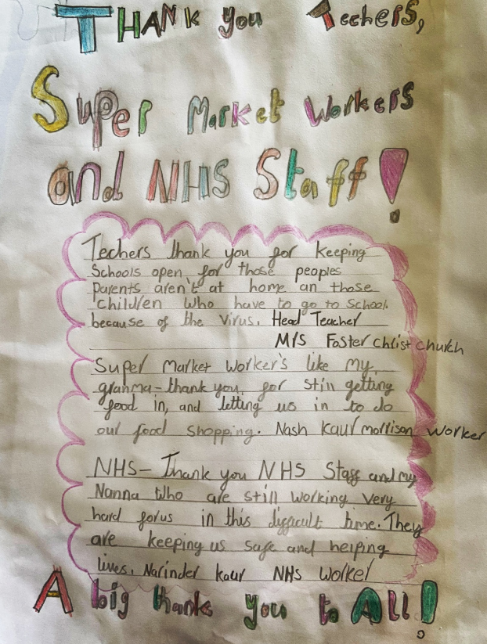 THANK you Techers,
Super Market Workers
and NHS Staff!
Techers thank you for keeping
Schools open, for those peoples
Parents aren't at home an those
children who have to go to School
because of the Virus. Head Teacher
Mrs Foster christ church
Super Market Worker's like my
granma-thank you, for still getting
food in, and letting us in to do
our food shopping. Nash Kaur morrison worker
NHS- Thank you NHS Staff and my
Nanna who are still working very
hard forus in this difficult time. They
are keeping us safe and helping
lives. Narinder kaur NHS Worker
A big thanks you to All!